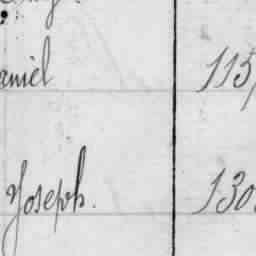 aniel 115
Joseph. 130